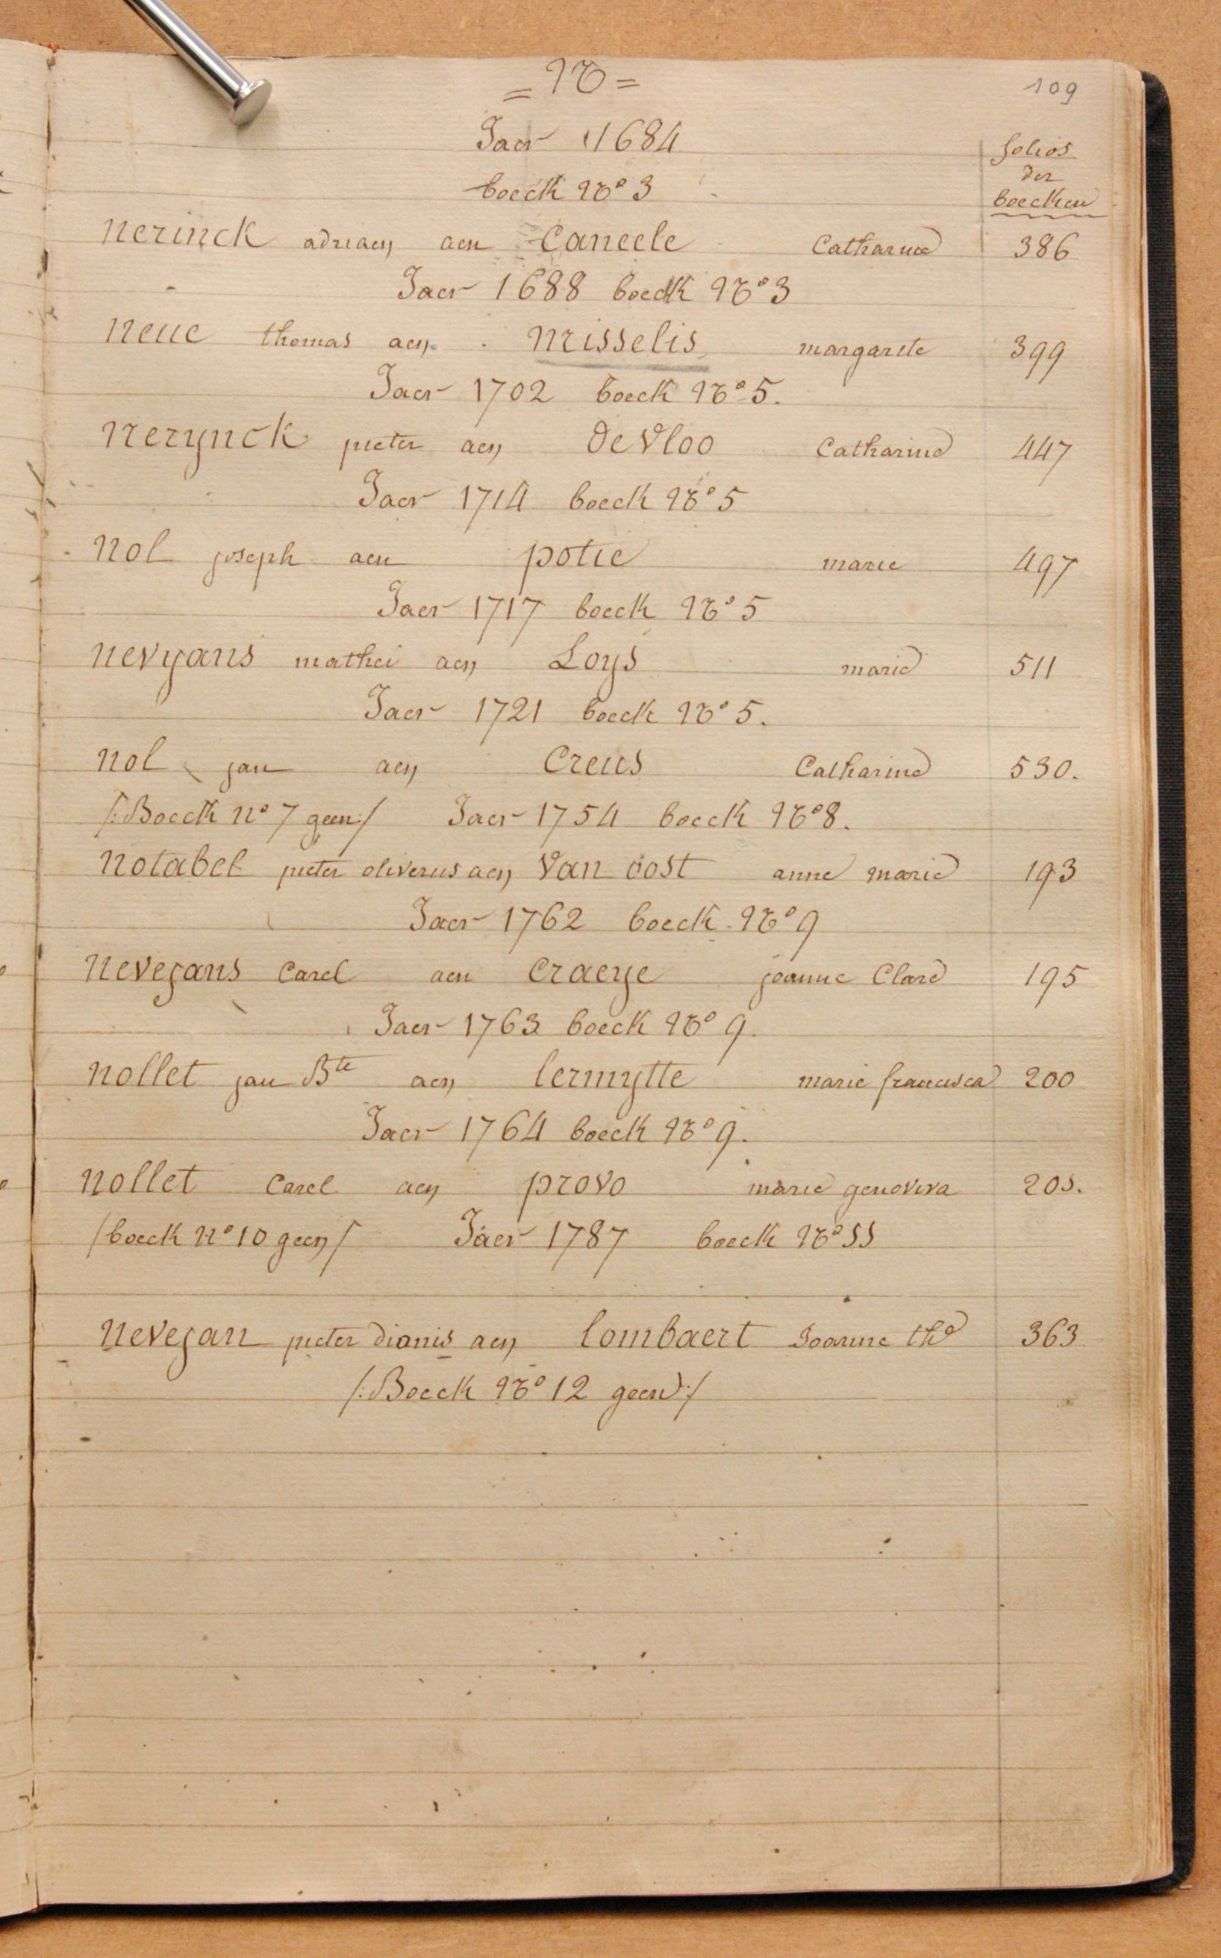 = N =
109
Jaer 1684
folios
der
boecken
boeck No 3
nerinck adriaen aen Caneele Catharine 386
Jaer 1688 boeck No 3
neue thomas aen. misselis margarete 399
Jaer 1702 boeck No 5.
nerynck pieter aen de Vloo Catharine 447
Jaer 1714 boeck No 5
nol joseph aen potie marie 497
Jaer 1717 boeck No 5
nevyans mathei aen Loys marie 511
Jaer 1721 boeck No 5.
nol jan aen Creus Catharine 530.
/:Boeck No 7 geen:/ Jaer 1754 boeck No 8.
notabel pieter oliverus aen Van oost anne marie 193
Jaer 1762 boeck No 9
nevejans Carel aen Craeye joanne Clare 195
Jaer 1763 boeck No 9.
nollet jan Bte aen lermytte marie francisca 200
Jaer 1764 boeck No 9.
nollet Carel aen provo marie genoviva 205.
/boeck No 10 geen/ Jaer 1787 boeck No 11
nevejan pieter dionis aen lombaert Joanne the 363
/:Boeck No 12 geen:/